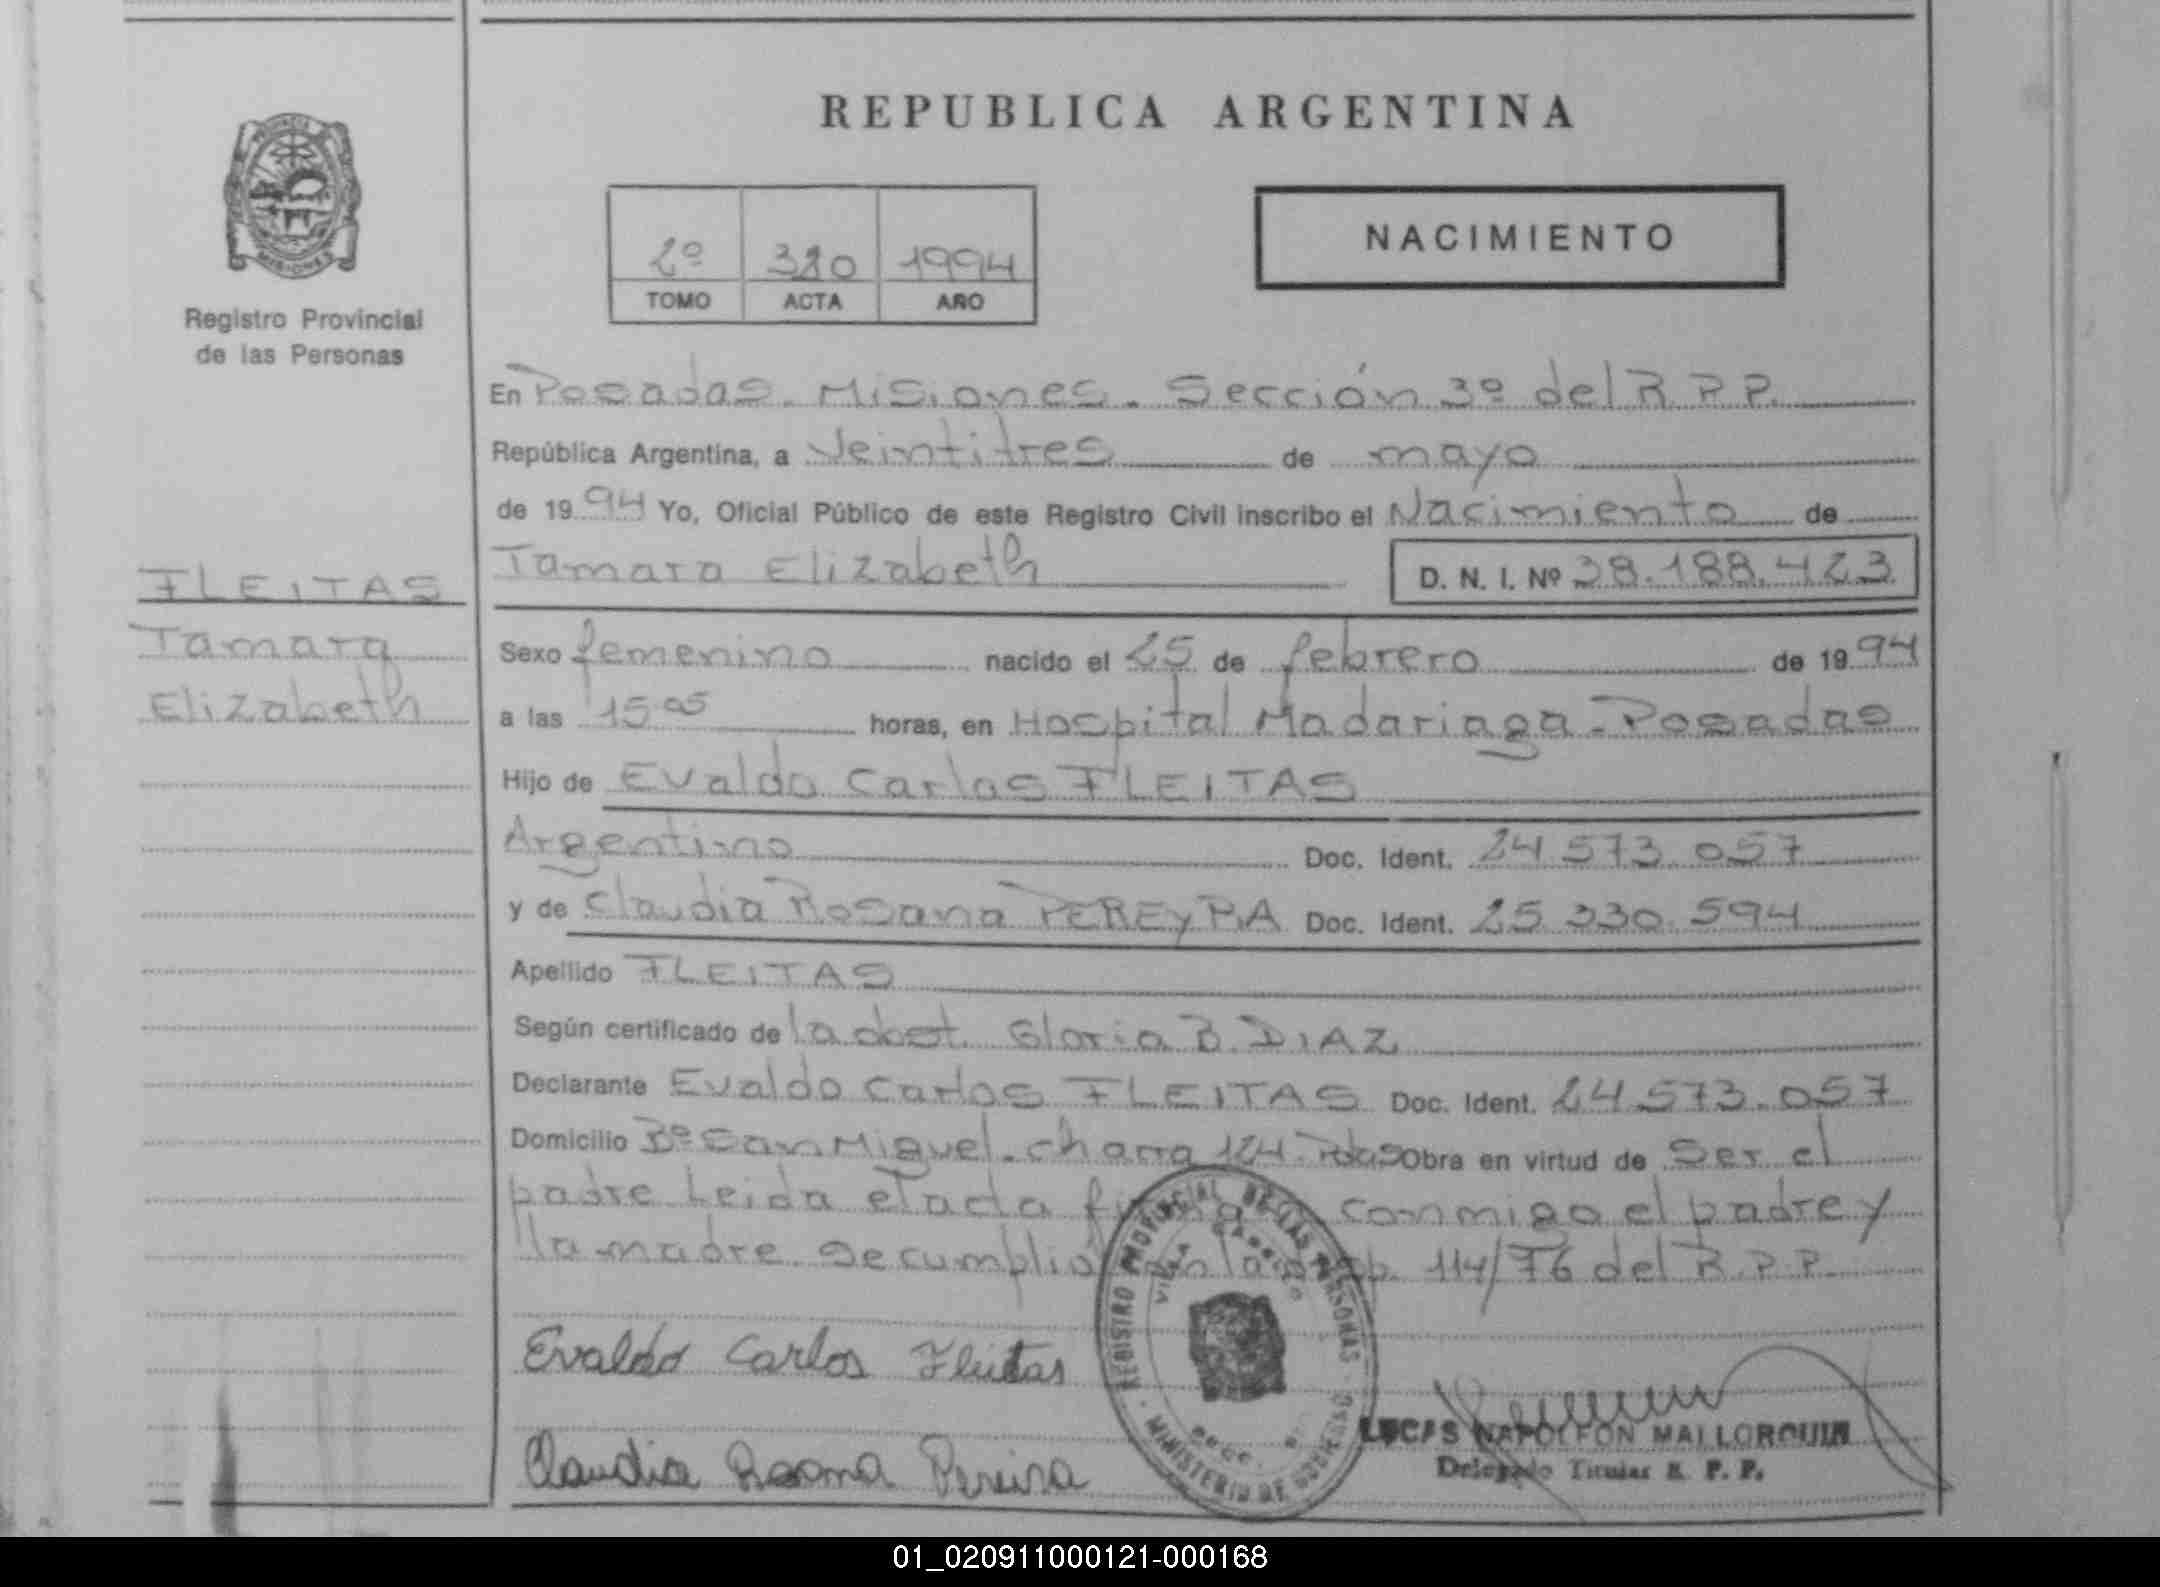 REPUBLICA ARGENTINA
PROVINCIA
MISIONES
Registro Provincial
de las Personas
2º 320 1994
TOMO ACTA AÑO
NACIMIENTO
En Posadas. Misiones. Sección 3º del R.P.P.
República Argentina, a Veintitres de mayo
de 1994 Yo, Oficial Público de este Registro Civil inscribo el Nacimiento de
Tamara Elizabeth D. N. I. Nº 38.188.423
FLEITAS
Tamara
Elizabeth
Sexo femenino nacido el 25 de febrero de 1994
a las 15 05 horas, en Hospital Madariaga - Posadas
Hijo de Evaldo Carlos FLEITAS
Argentino Doc. Ident. 24 573 057
y de Claudia Rosana PEREYRA Doc. Ident. 25 330. 594
Apellido FLEITAS
Según certificado de la obst. Gloria B. DIAZ
Declarante Evaldo Carlos FLEITAS Doc. Ident. 24 573.057
Domicilio Bº San Miguel. chacra 124. Pdas Obra en virtud de ser el
padre Leida el acta conmigo el padre y
la madre se cumplió 114/76 del R.P.P.
Evaldo Carlos Fleitas
Claudia Rosana Pereira
REGISTRO PROVINCIAL DE LAS PERSONAS
MINISTERIO DE GOBIERNO
VILLA CABELLO
LUCAS NAPOLEON MALLORQUIN
Delegado Titular R. P. P.
01_020911000121-000168